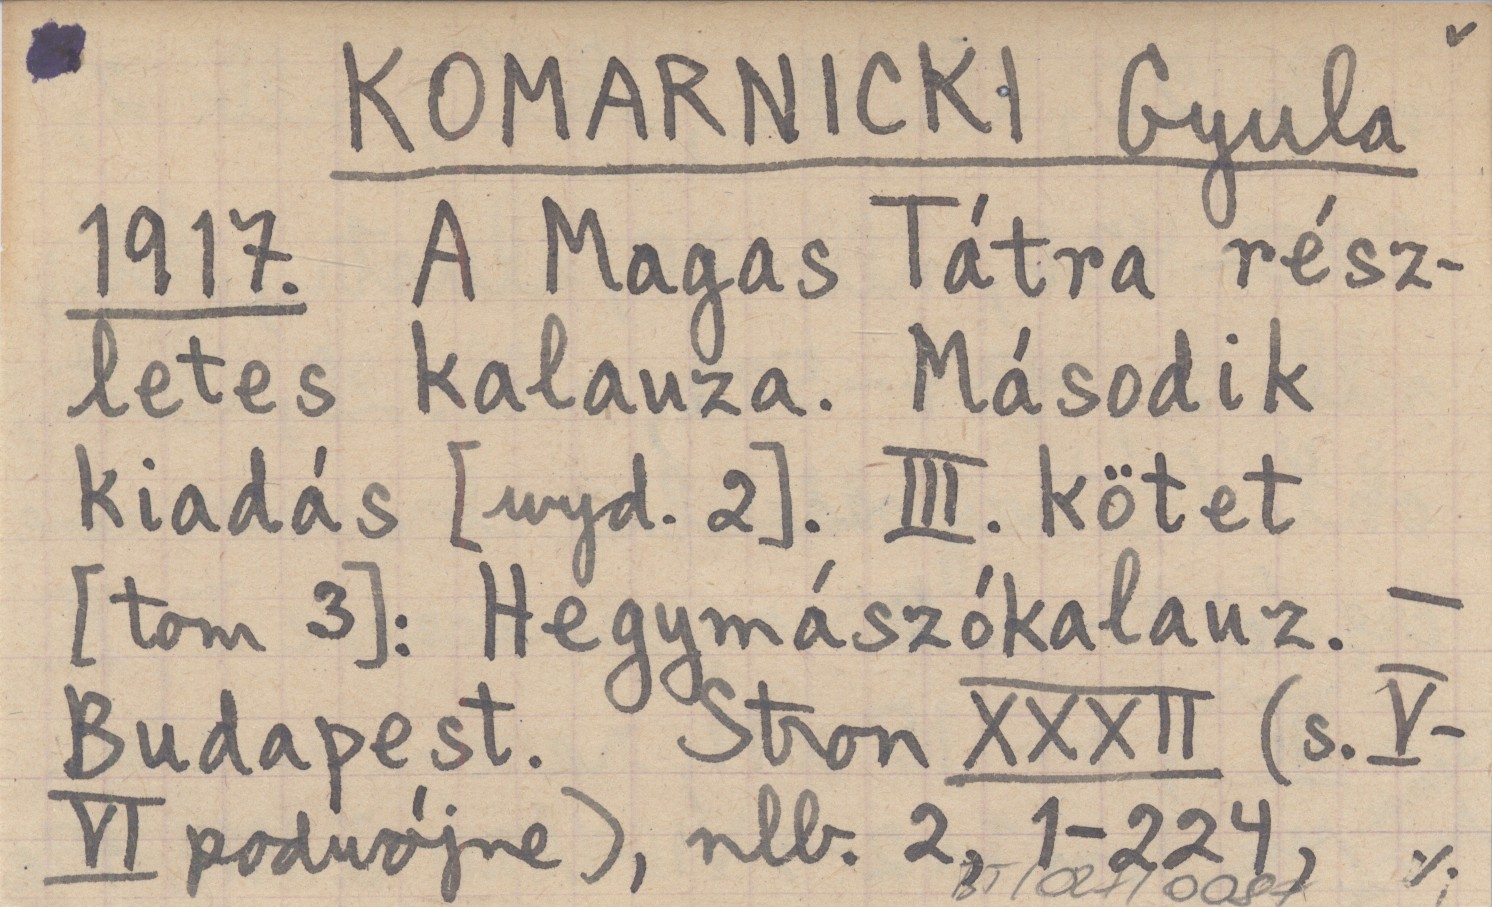 KOMARNICKI Gyula
1917. A Magas Tátra rész-
letes kalauza. Második
kiadás [wyd. 2]. III. kötet
[tom 3]: Hegymászókalauz. –
Budapest. Stron XXXII (s. V-
VI podwójne), nlb. 2, 1-224,
BT/027/0087